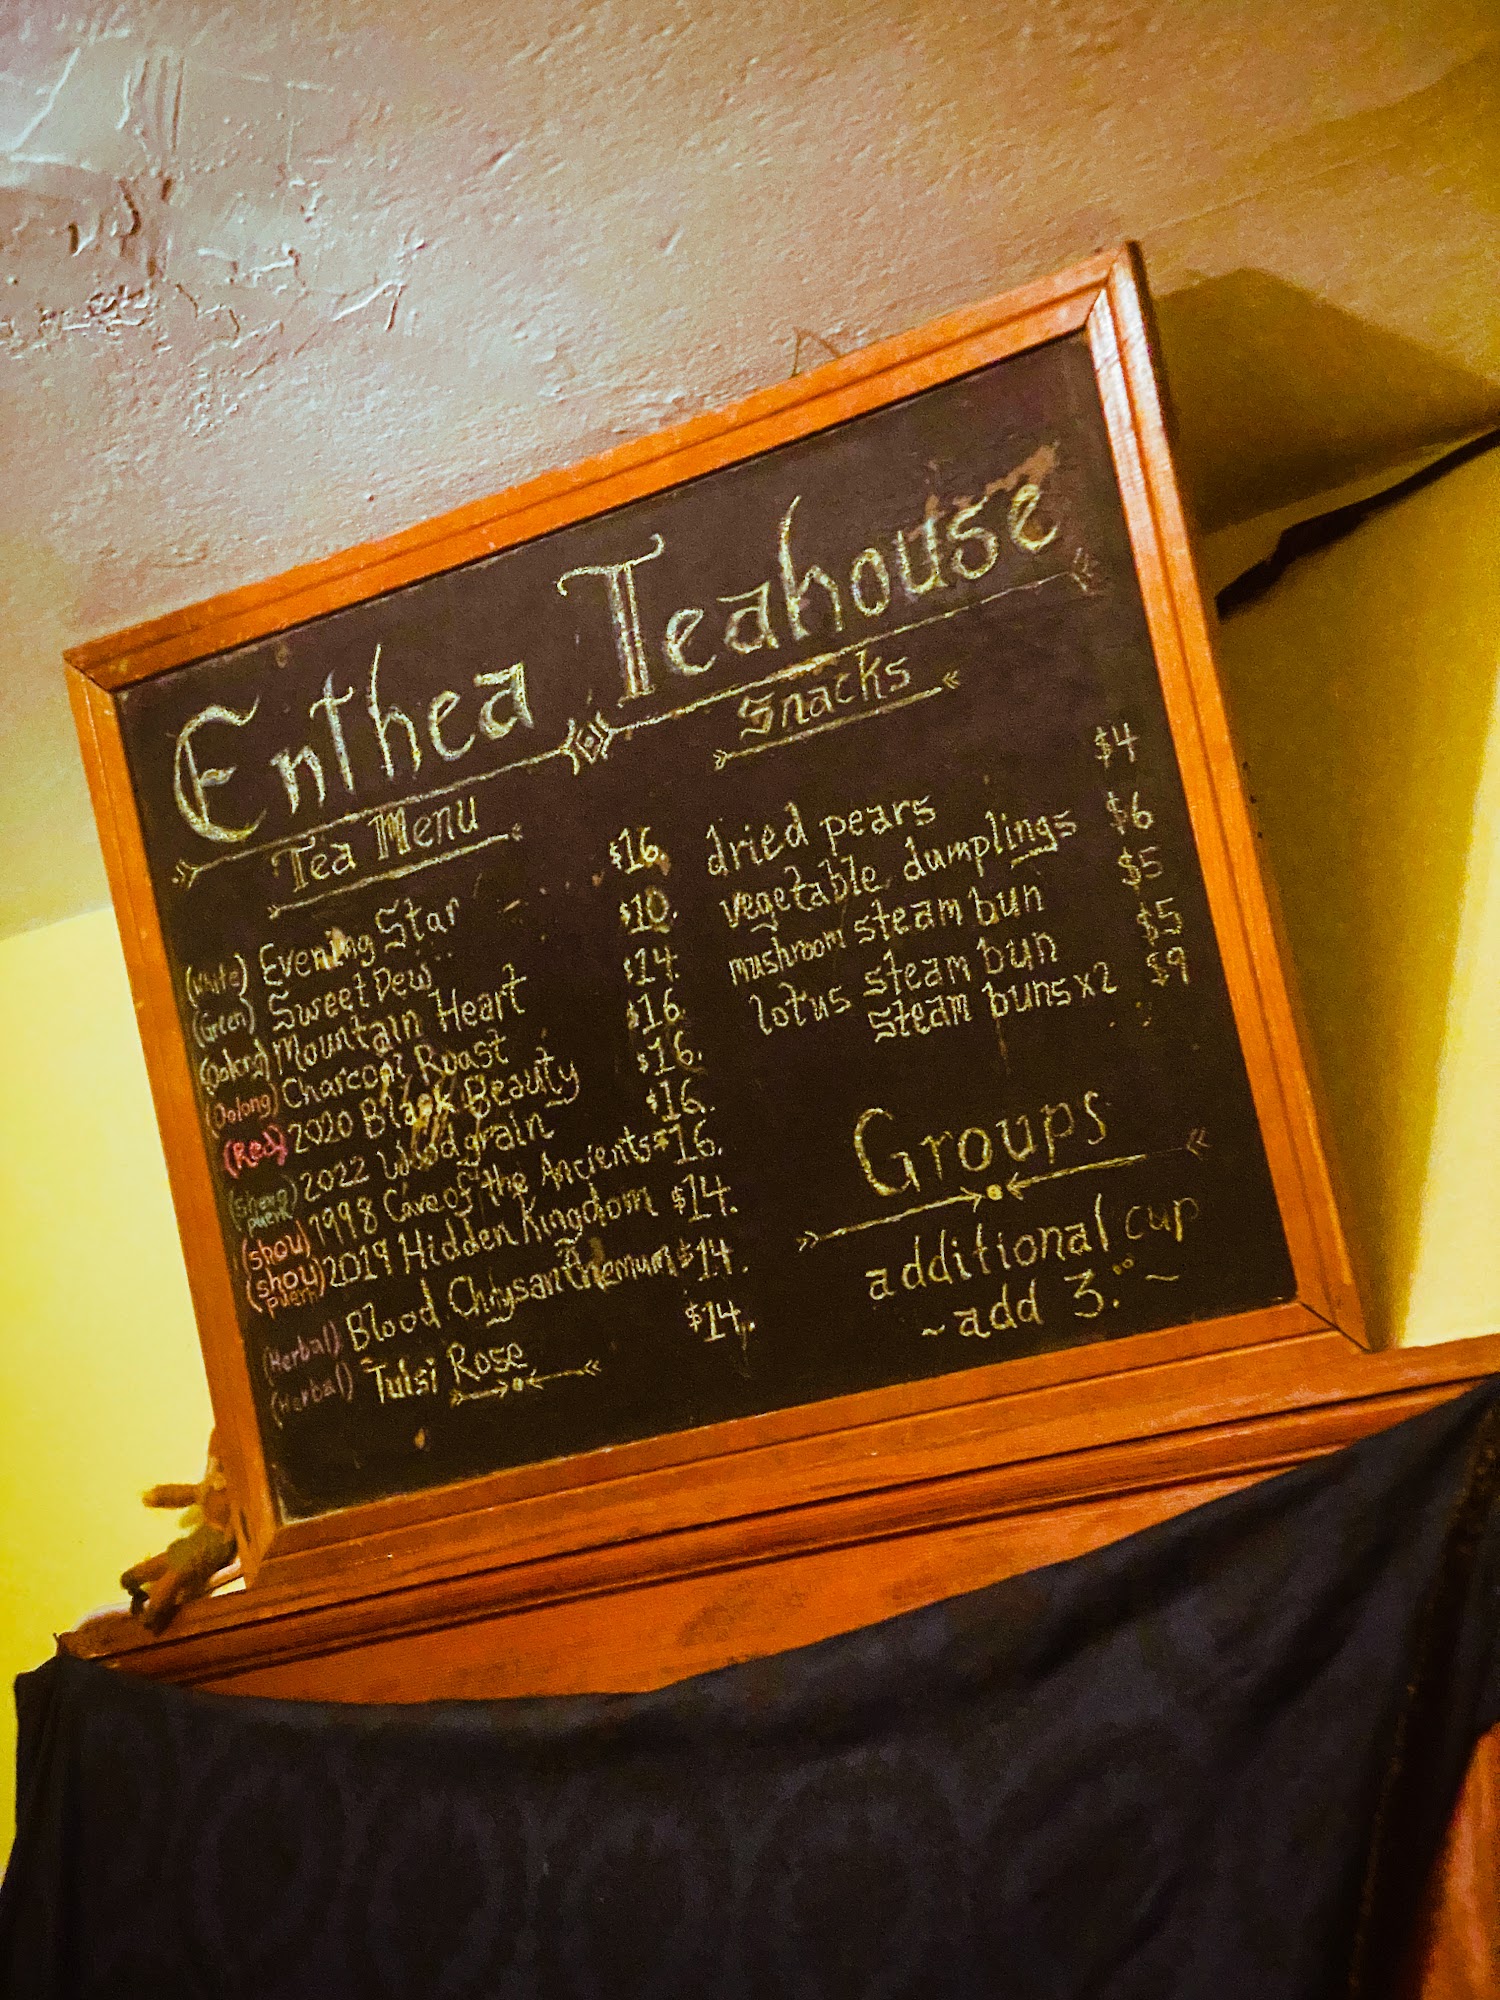 Enthea Teahouse
Tea Menu
(White) Evening Star $16.
(Green) Sweet Dew $10.
(Oolong) Mountain Heart $14.
(Oolong) Charcoal Roast $16.
(Red) 2020 Black Beauty $16.
(Sheng puerh) 2022 Woodgrain $16.
(shou) 1998 Cave of the Ancients $16.
(shou puerh) 2019 Hidden Kingdom $14.
(Herbal) Blood Chrysanthemum $14.
(Herbal) Tulsi Rose $14.
Snacks
dried pears $4
vegetable dumplings $6
mushroom steam bun $5
lotus steam bun $5
steam buns x2 $9
Groups
additional cup
~add 3.00~